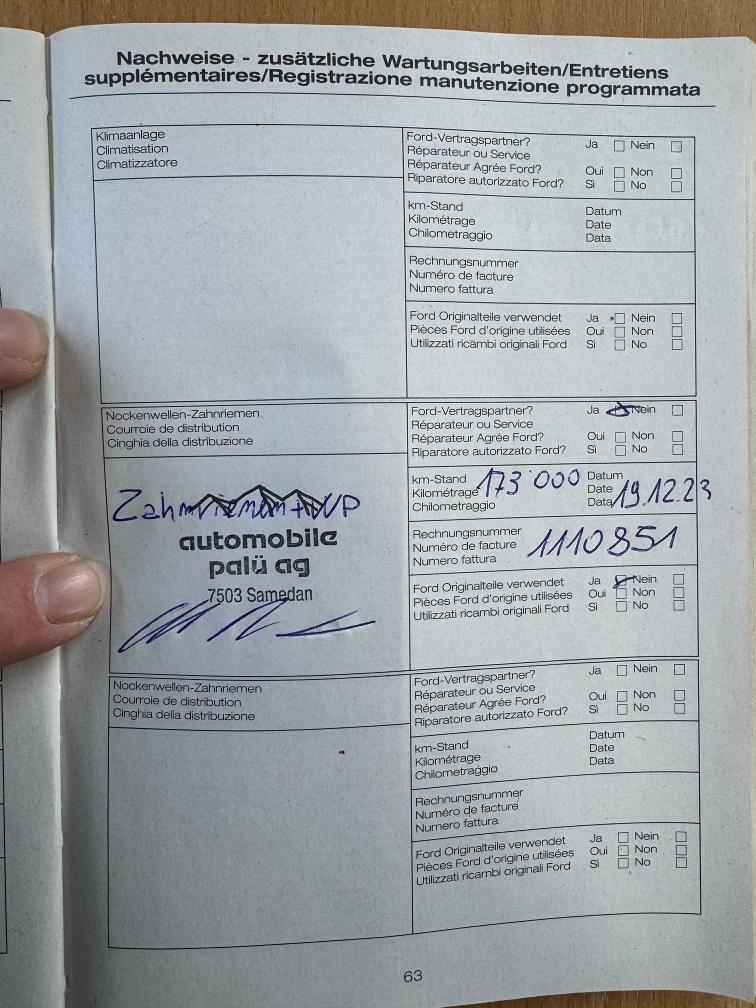 Nachweise - zusätzliche Wartungsarbeiten/Entretiens
supplémentaires/Registrazione manutenzione programmata
Klimaanlage
Climatisation
Climatizzatore
Ford-Vertragspartner? Ja Nein
Réparateur ou Service
Réparateur Agrée Ford? Oui Non
Riparatore autorizzato Ford? Sì No
km-Stand Datum
Kilométrage Date
Chilometraggio Data
Rechnungsnummer
Numéro de facture
Numero fattura
Ford Originalteile verwendet Ja Nein
Pièces Ford d'origine utilisées Oui Non
Utilizzati ricambi originali Ford Sì No
Nockenwellen-Zahnriemen
Courroie de distribution
Cinghia della distribuzione
Zahnriemen + WP
automobile
palü ag
7503 Samedan
Ford-Vertragspartner? Ja Nein
Réparateur ou Service
Réparateur Agrée Ford? Oui Non
Riparatore autorizzato Ford? Sì No
km-Stand Datum
Kilométrage 173'000 Date 19.12.23
Chilometraggio Data
Rechnungsnummer
Numéro de facture 1110851
Numero fattura
Ford Originalteile verwendet Ja Nein
Pièces Ford d'origine utilisées Oui Non
Utilizzati ricambi originali Ford Sì No
Nockenwellen-Zahnriemen
Courroie de distribution
Cinghia della distribuzione
Ford-Vertragspartner? Ja Nein
Réparateur ou Service
Réparateur Agrée Ford? Oui Non
Riparatore autorizzato Ford? Sì No
km-Stand Datum
Kilométrage Date
Chilometraggio Data
Rechnungsnummer
Numéro de facture
Numero fattura
Ford Originalteile verwendet Ja Nein
Pièces Ford d'origine utilisées Oui Non
Utilizzati ricambi originali Ford Sì No
63